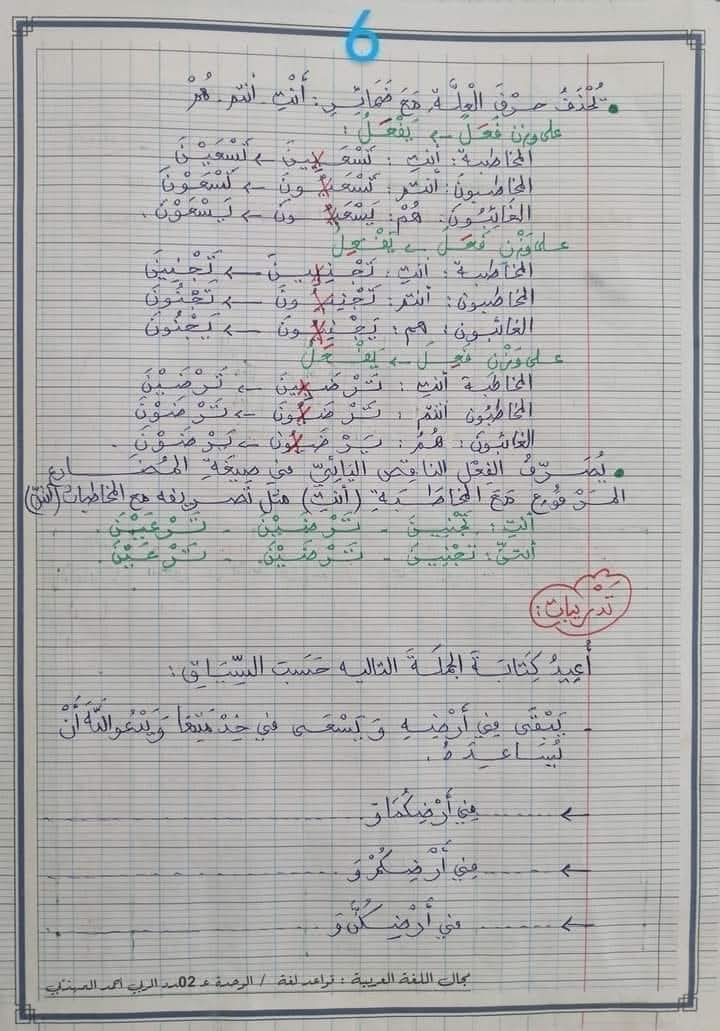 6
• تُحْذَفُ حَرْفُ الْعِلَّةِ مَعَ ضَمَائِرِ: أَنْتِ - أنتم - هُمْ
على وزن فَعَلَ ← يَفْعَلُ :
المخاطبة: أنتِ : تَسْعَيِينَ ← تَسْعَيْنَ
المخاطبون: أنتم : تَسْعَيُونَ ← تَسْعَوْنَ
الغَائِبُونَ: هُمْ: يَسْعَيُونَ ← يَسْعَوْنَ .
على وَزْنِ فَعَلَ ← يَفْعِلُ
المخاطبة: انتِ : تَجْنِيِينَ ← تَجْنِينَ
المخاطبون: أنتم: تَجْنِيُونَ ← تَجْنُونَ
الغائبون: هم: يَجْنِيُونَ ← يَجْنُونَ
على وَزْنِ فَعِلَ ← يَفْعَلُ
المخاطَبة أنتِ : تَرْضَيِينَ ← تَرْضَيْنَ
المخاطبُون أنتُم : تَرْضَيُونَ ← تَرْضَوْنَ
الغائبُونَ: هُمُ : يَرْضَيُونَ ← يَرْضَوْنَ .
• يُصَرَّفُ الفِعْلُ الناقِصُ اليَائِيُّ في صيغَةِ المُضَارع
المَرْفُوع مَعَ المخَاطَبَةِ (أَنْتِ) مثل تصريفه مع المخاطبات (أنتنّ)
أنتِ: تَجْنِينَ - تَرْضَيْنَ - تَرْعَيْنَ .
أنتنّ: تَجْنِينَ - تَرْضَيْنَ - تَرْعَيْنَ .
تَدْرِيبات:
أُعِيدُ كِتَابَةَ الجملَةَ التاليه حَسَبَ السِّيَاقِ :
- يَبْقَى فِي أَرْضِهِ وَيَسْعَى فِي خِدْمَتِهَا وَيَدْعُو اللَّهَ أَنْ
يُسَاعِدَهُ.
← ...... فِي أَرْضِكُمَا وَ ......
← ...... فِي أَرْضِكُمْ وَ ......
← ...... فِي أَرْضِكُنَّ وَ ......
مجال اللغة العربية : قواعد لغة / الوحدة عـ02ـدد المربي احمد